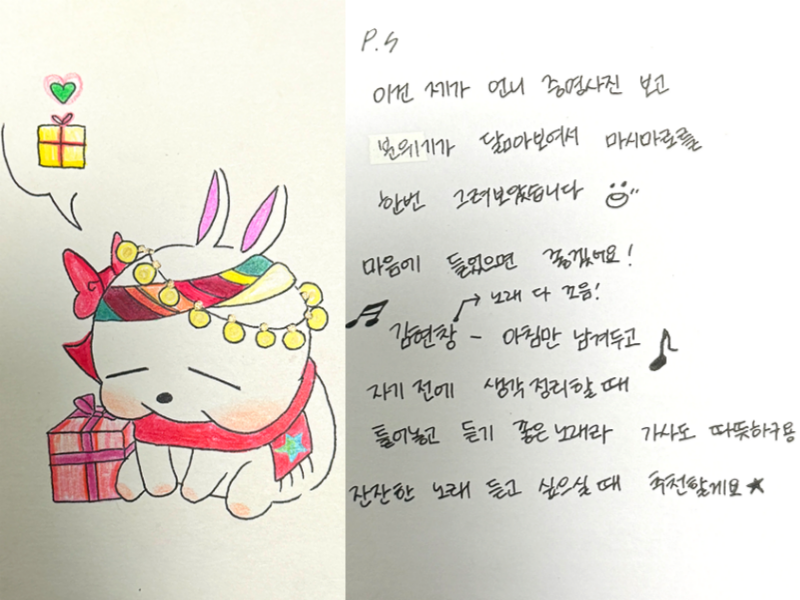 P.S
이건 제가 언니 증명사진 보고
분위기가 닮아보여서 마시마로를
한번 그려보았습니다
마음에 들었으면 좋겠어요!
노래 다 좋음!
김현창 - 아침만 남겨두고
자기 전에 생각 정리할 때
틀어놓고 듣기 좋은 노래라 가사도 따뜻하구용
잔잔한 노래 듣고 싶으실 때 추천할게요